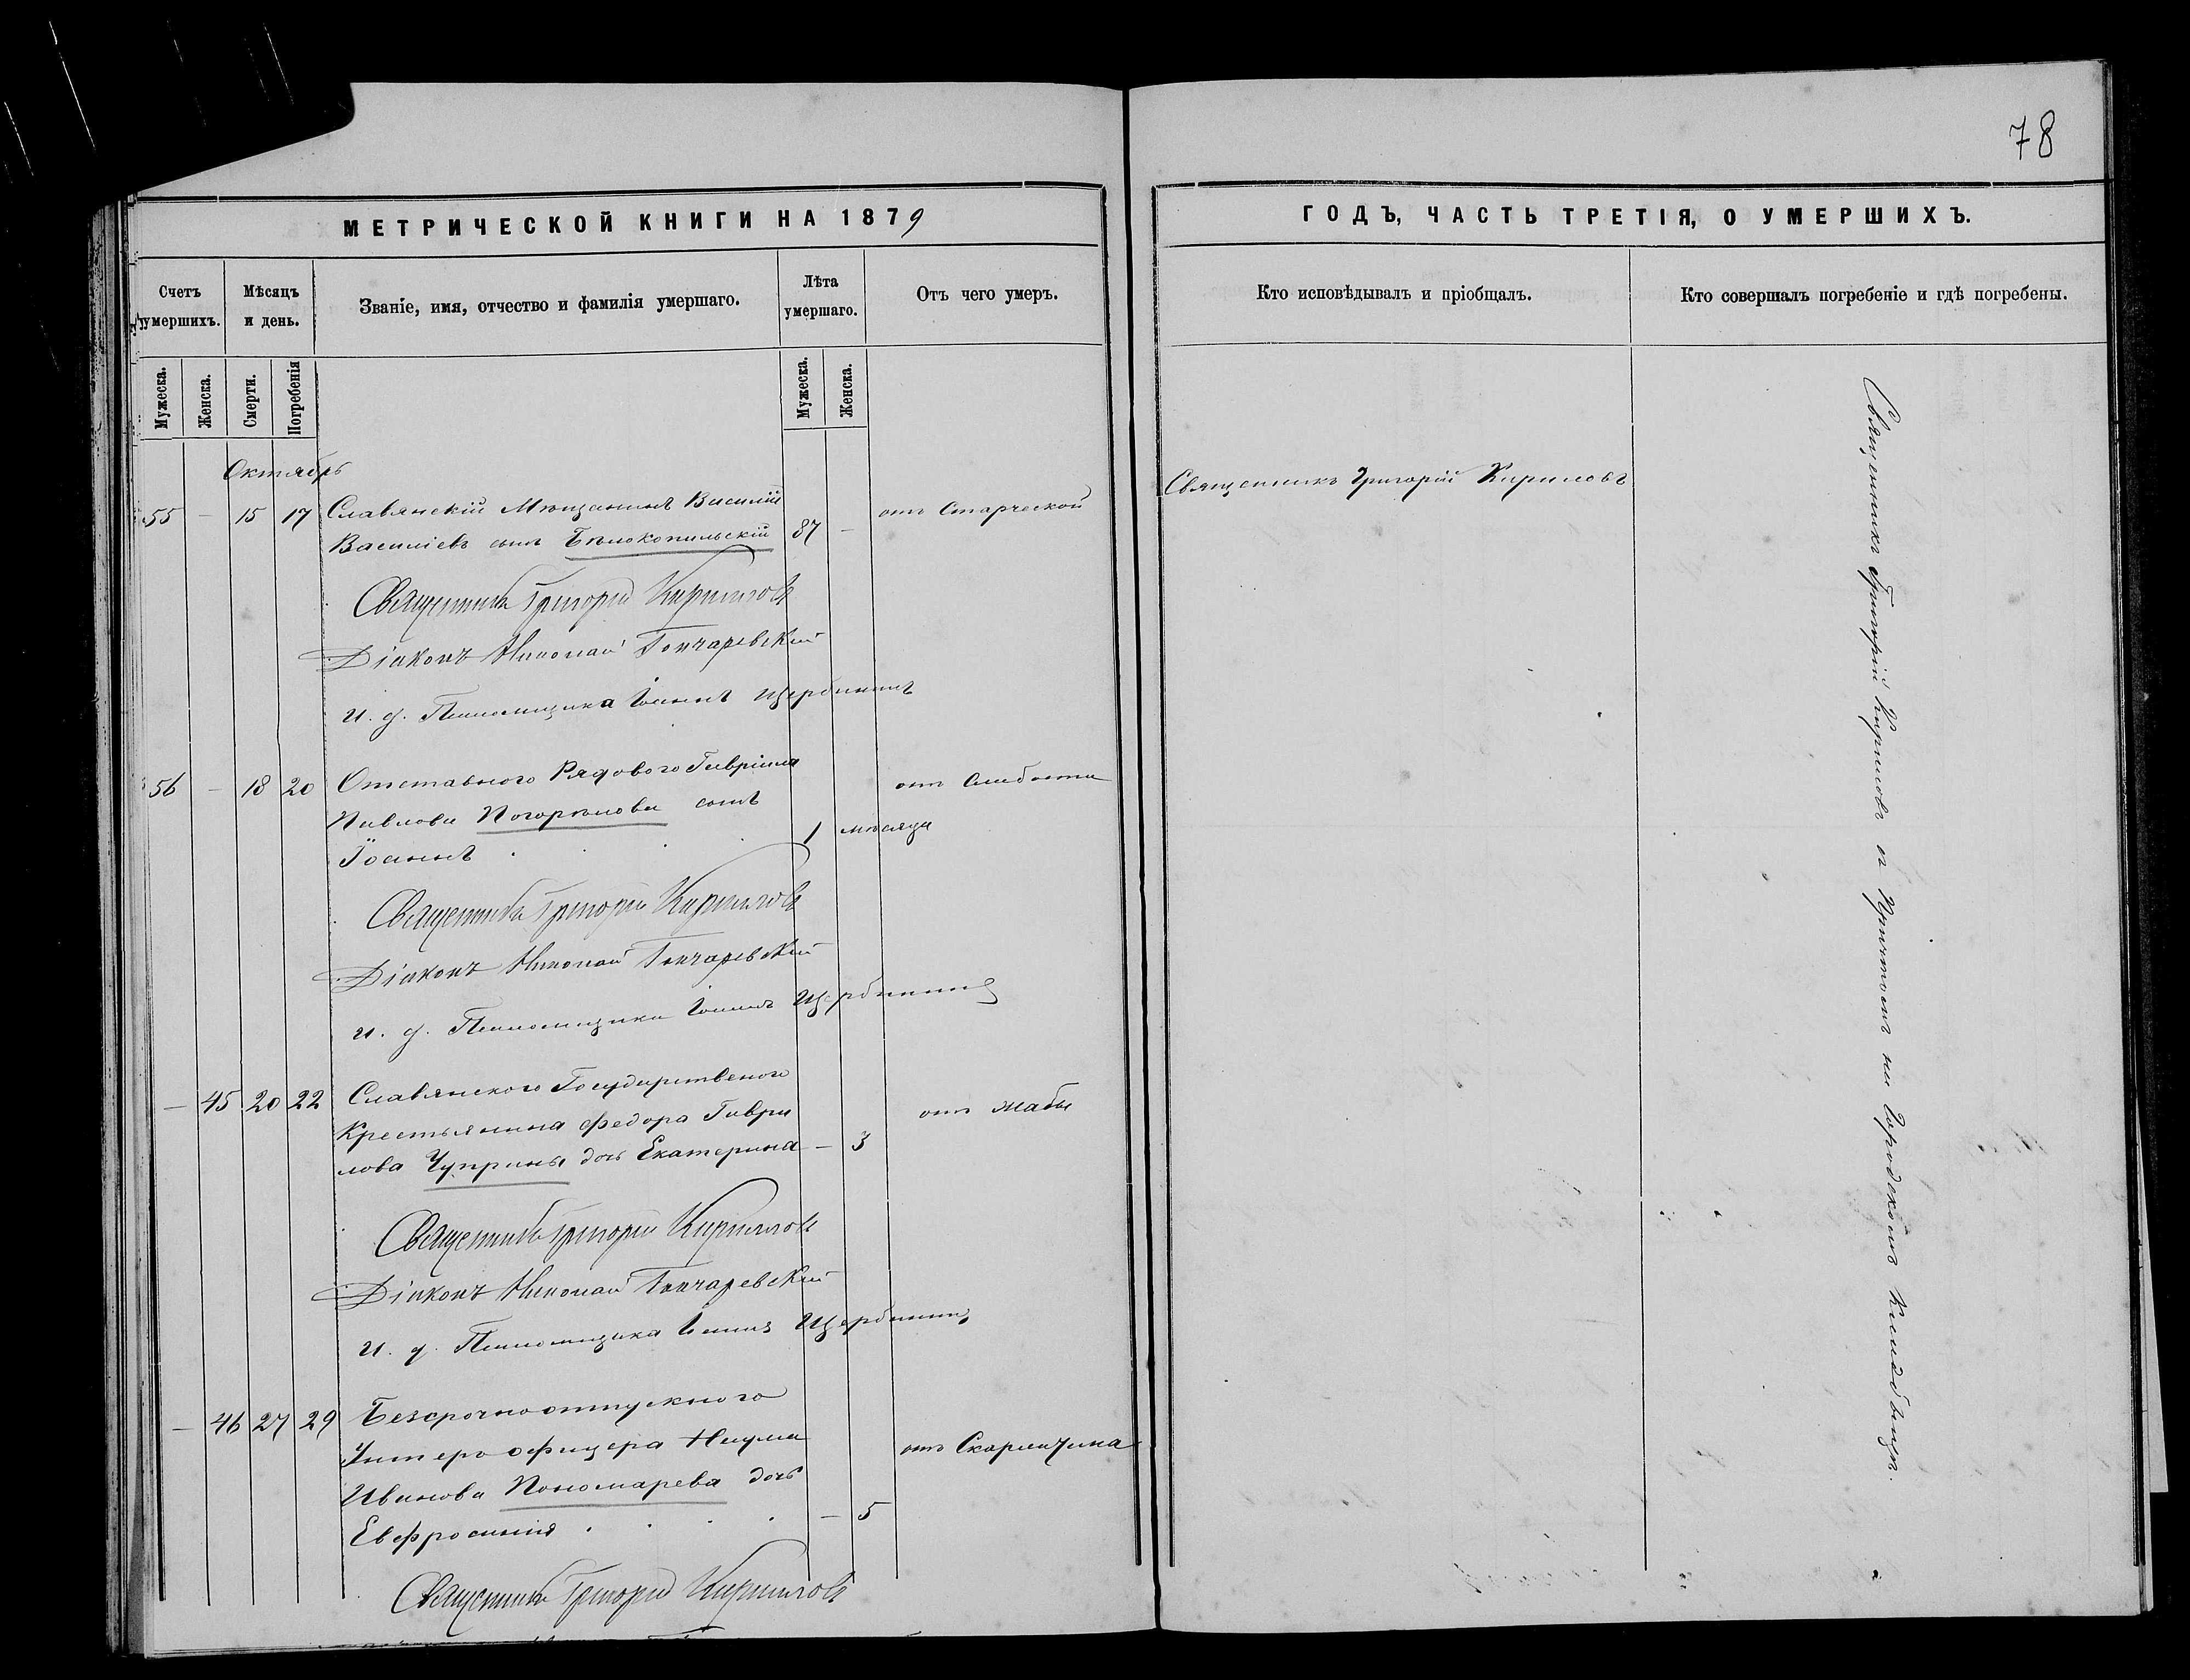 78
МЕТРИЧЕСКОЙ КНИГИ НА 1879
Счетъ умершихъ.
Мѣсяцъ и день.
Званіе, имя, отчество и фамилія умершаго.
Лѣта умершаго.
Отъ чего умеръ.
Мужеска.
Женска.
Смерти.
Погребенія
Мужеска.
Женска.
Октябрь
55 - 15 17 Славянскій Мѣщанинъ Василій
Василіевъ сынъ Бѣлокопильскій 87 - отъ Старческой
Священникъ Григорій Кирилловъ
Діаконъ Николай Гончаревскій
И. д. Псаломщика Іоаннъ Щербининъ
56 - 18 20 Отставного Рядового Гавріила отъ Слабости
Павлова Погорѣлова сынъ
Іоаннъ 1 мѣсяца
Священникъ Григорій Кирилловъ
Діаконъ Николай Гончаревскій
И. д. Псаломщика Іоаннъ Щербининъ
- 45 20 22 Славянского Государственого
Крестьянина Федора Гаври отъ Жабы
лова Чуприны дочь Екатерина - 3
Священникъ Григорій Кирилловъ
Діаконъ Николай Гончаревскій
И. д. Псаломщика Іоаннъ Щербининъ
- 46 27 29 Безсрочноотпускного
Унтеръ офицера Наума отъ Скарлатина
Иванова Пономарева дочь
Евфросинія - 5
Священникъ Григорій Кирилловъ
ГОДЪ, ЧАСТЬ ТРЕТІЯ, О УМЕРШИХЪ.
Кто исповѣдывалъ и пріобщалъ.
Кто совершалъ погребеніе и гдѣ погребены.
Священникъ Григорій Кириловъ
Священникъ Григорій Кириловъ съ Причтомъ на Городскомъ Кладбищѣ.